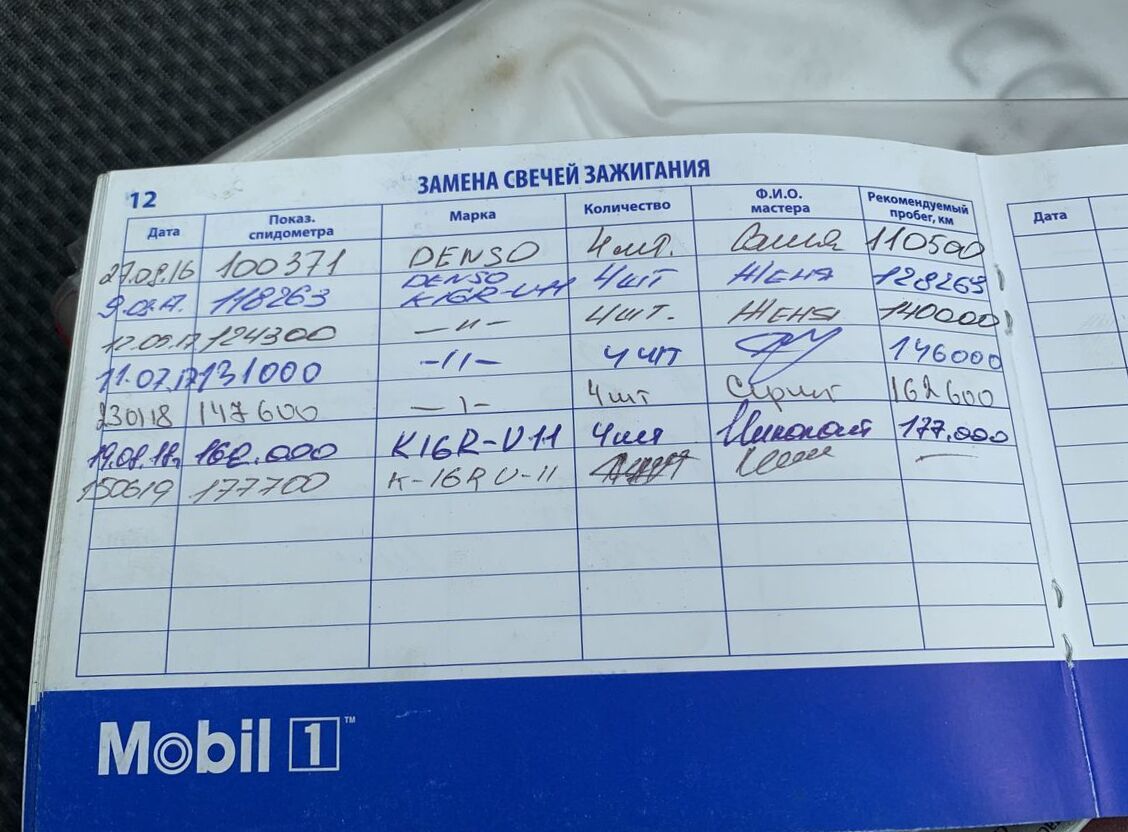 12 ЗАМЕНА СВЕЧЕЙ ЗАЖИГАНИЯ
Дата Показ. спидометра Марка Количество Ф.И.О. мастера Рекомендуемый пробег, км Дата
27.09.16 100371 DENSO 4 шт. Саша 110500
118263 DENSO K16R-U11 4 шт Женя 128263
124300 —"— 4 шт. Женя 140000
11.07.17 131000 —"— 4 шт 146000
230118 147600 —"— 4 шт 162600
19.08.18г 162.000 K16R-U11 4 шт Николай 177.000
150619 177700 K-16RU-11 —
Mobil 1™